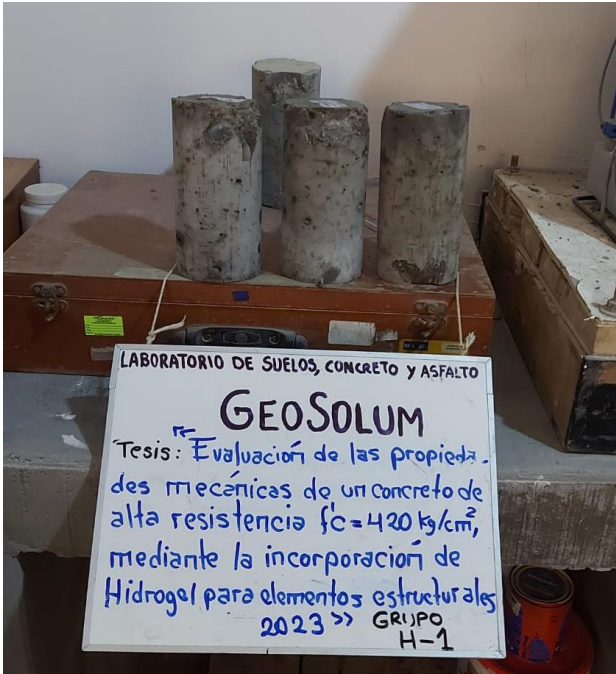 LABORATORIO DE SUELOS, CONCRETO Y ASFALTO
GEOSOLUM
Tesis: "Evaluación de las propieda-
des mecánicas de un concreto de
alta resistencia f'c=420 kg/cm²,
mediante la incorporación de
Hidrogel para elementos estructurales
2023>> GRUPO
H-1